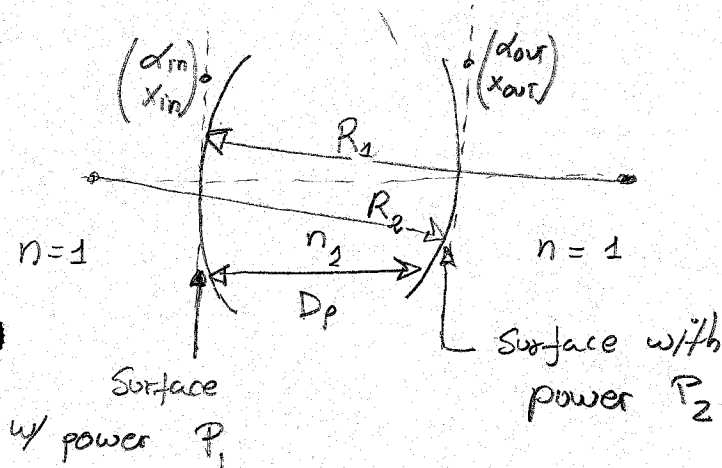 (α_in x_in)
(α_out x_out)
R_1
R_2
n=1
n_1
n=1
D_p
Surface w/ power P_1
Surface with power P_2